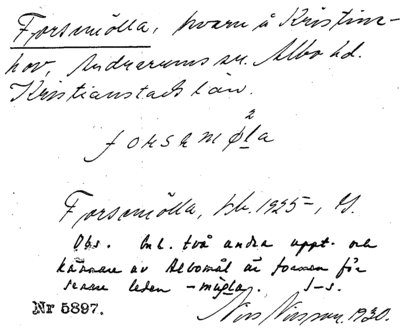 Forsmölla, kvarn å Kristine-
hov, Andrarums sn. Albo hd.
Kristianstads län.
2
forsamøla
Forsmölla, Jb. 1925, G.
Obs. Enl. två andra uppt. och
kännare av Albomål är formen för
senare leden -mø̄gla. J-s.
Nr 5897.
Nils Nilsson. 1930.